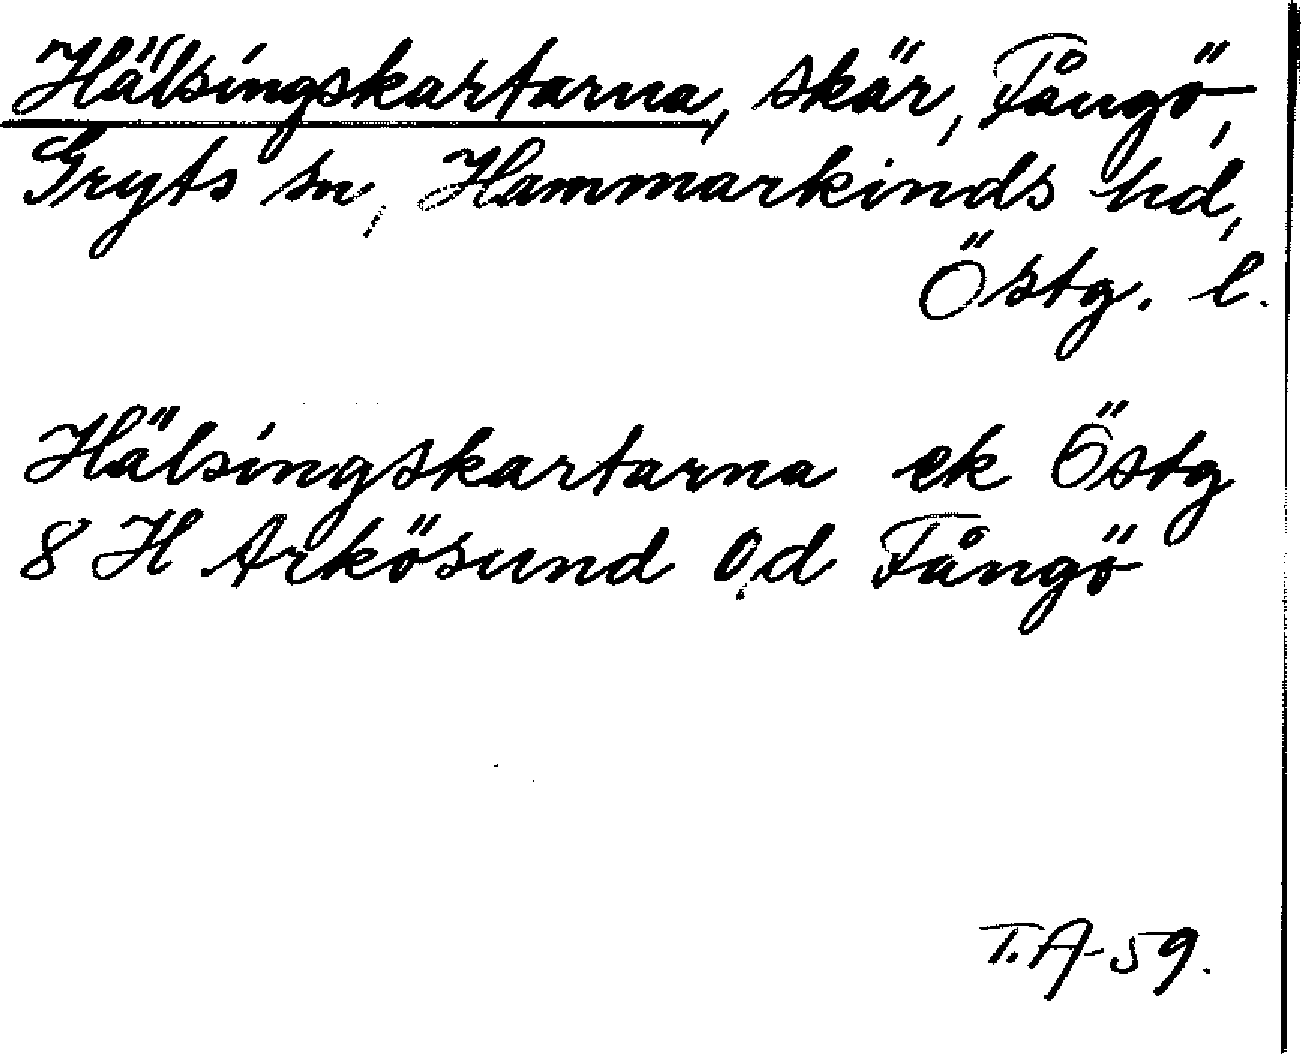 Hälsingskartarna, skär, Fångö,
Gryts sn, Hammarkinds hd,
Östg. l.
Hälsingskartarna ek Östg
8 H Arkösund O,d Fångö
T.A-59.